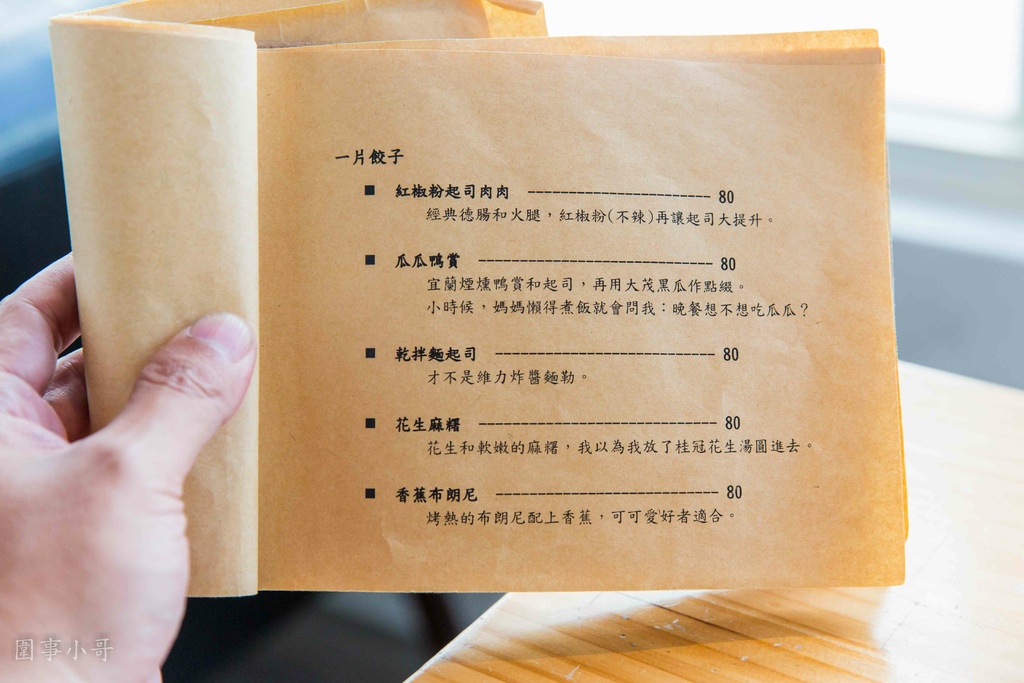 一片餃子
■ 紅椒粉起司肉肉 ---------------------- 80
經典德腸和火腿，紅椒粉(不辣)再讓起司大提升。
■ 瓜瓜鴨賞 ---------------------------- 80
宜蘭煙燻鴨賞和起司，再用大茂黑瓜作點綴。
小時候，媽媽懶得煮飯就會問我：晚餐想不想吃瓜瓜？
■ 乾拌麵起司 -------------------------- 80
才不是維力炸醬麵勒。
■ 花生麻糬 ---------------------------- 80
花生和軟嫩的麻糬，我以為我放了桂冠花生湯圓進去。
■ 香蕉布朗尼 -------------------------- 80
烤熱的布朗尼配上香蕉，可可愛好者適合。
圍事小哥